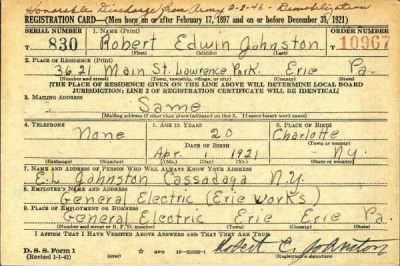 Honorable Discharge from Army 2-8-46 - Demobilization
REGISTRATION CARD—(Men born on or after February 17, 1897 and on or before December 31, 1921)
SERIAL NUMBER 1. NAME (Print) ORDER NUMBER
T 830 Robert Edwin Johnston T 10967
(First) (Middle) (Last)
2. PLACE OF RESIDENCE (Print)
3621 Main St. Lawrence Park. Erie Pa.
(Number and street) (Town, township, village, or city) (County) (State)
[THE PLACE OF RESIDENCE GIVEN ON THE LINE ABOVE WILL DETERMINE LOCAL BOARD
JURISDICTION; LINE 2 OF REGISTRATION CERTIFICATE WILL BE IDENTICAL]
3. MAILING ADDRESS
Same
[Mailing address if other than place indicated on line 2. If same insert word same]
4. TELEPHONE 5. AGE IN YEARS 6. PLACE OF BIRTH
None 20 Charlotte
DATE OF BIRTH (Town or county)
Apr. 1921 N.Y.
(Exchange) (Number) (Mo.) (Day) (Yr.) (State or country)
7. NAME AND ADDRESS OF PERSON WHO WILL ALWAYS KNOW YOUR ADDRESS
E.L. Johnston Cassadaga N.Y.
8. EMPLOYER'S NAME AND ADDRESS
General Electric (Erie Works)
9. PLACE OF EMPLOYMENT OR BUSINESS
General Electric Erie Erie Pa.
(Number and street or R. F. D. number) (Town) (County) (State)
I AFFIRM THAT I HAVE VERIFIED ABOVE ANSWERS AND THAT THEY ARE TRUE.
D. S. S. Form 1
(Revised 1-1-42) GPO Robert E. Johnston
(Registrant's signature)